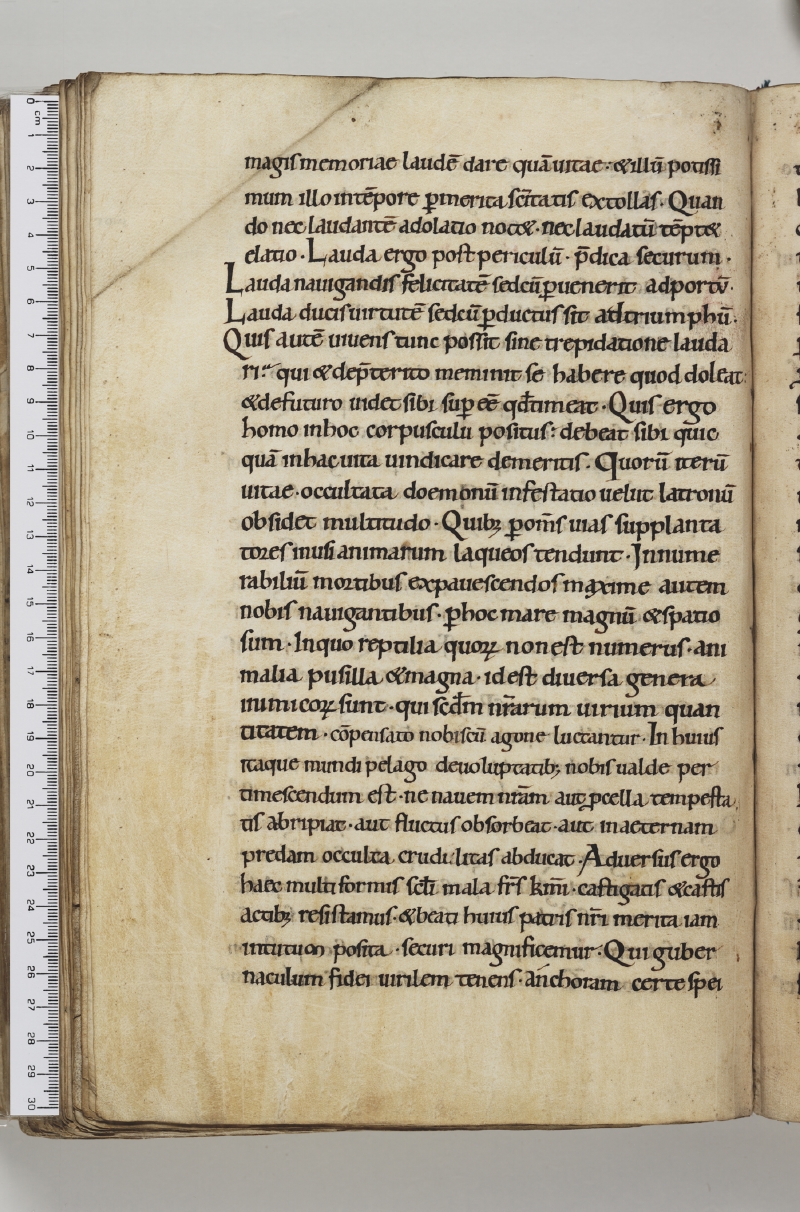 magis memoriae laudē dare quā uitae· & illū potissi
mum illo intēpore ꝑmerita sc̄itatis extollas· Quan
do nec laudantē adolatio noc&· nec laudatū tēpt&
elatio· Lauda ergo post periculū· p̄dica securum·
Lauda nauigandis felicitatē sed cū ꝑuenerit adportū·
Lauda ducis uirtutē sed cū ꝑductus sit ad triumphū·
Quis autē uiuens tunc possit sine trepidatione lauda
ri· qui & dep̄terito meminit se habere quod doleat
& defuturo uidet sibi suꝑ eē qđ timeat· Quis ergo
homo inhoc corpusculu positus: debeat sibi quic
quā inhac uita uindicare demeritis· Quorū iterū
uitae· occultata doemonū infestatio uelut latronū
obsidet multitudo· Quibꝫ ꝑom̄s uias supplanta
tores inuisi animarum laqueos tendunt· Innume
rabiliū mortibus expauescendos maxime autem
nobis nauigantibus· ꝑ hoc mare magnū & spatio
sum· In quo reptilia quoꝝ non est numerus· ani
malia pusilla & magna· id est diuersa genera
inimicoꝝ sunt· qui scđm nr̄arum uirium quan
titatem· cōpensato nobiscū agone luctantur· In huius
itaque mundi pelago deuoluptatibꝫ nobis ualde per
timescendum est· ne nauem nrām aut ꝑcella tempesta
tis abripiat· aut fluctus obsorbeat· aut inaeternam
predam occulta crudilitas abducat· Aduersus ergo
haec multiformis scl̄i mala fr̄s kmī· castigatis & castis
actibꝫ resistamus· & beati huius patris nr̄i merita iam
intituon posita· securi magnificemur· Qui guber
naculum fidei uirilem tenens· anchoram certe spei